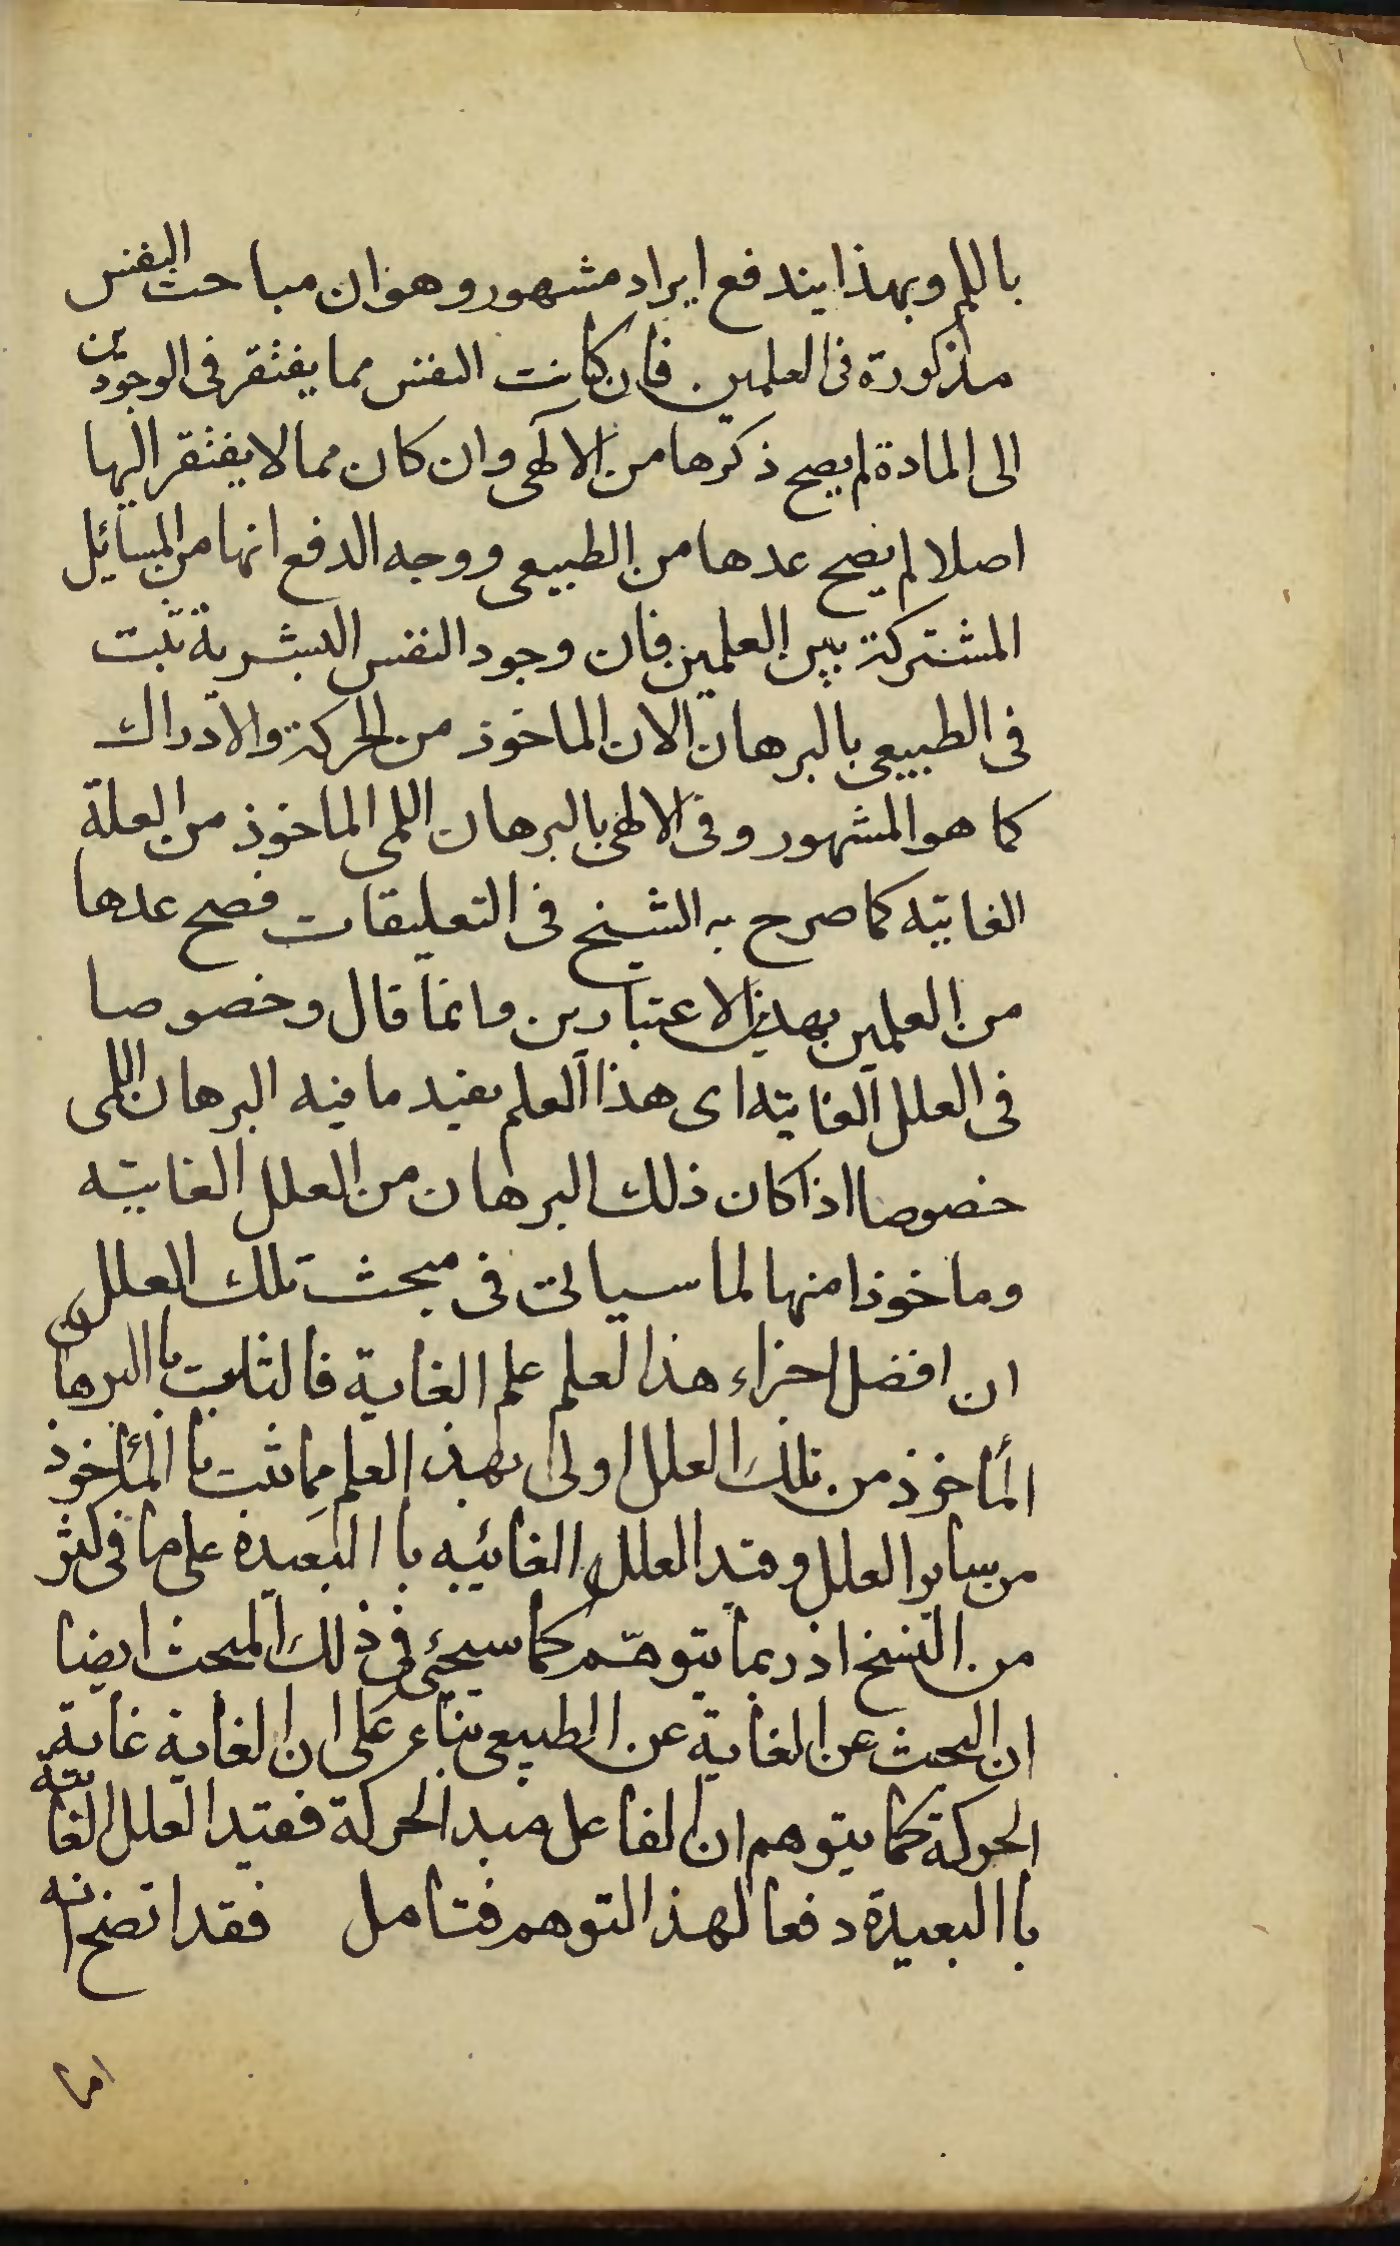 باللم وبهذا يندفع ايراد مشهور وهو ان مباحث النفس
مذكورة فى العلمين فان كانت النفس مما يفتقر فى الوجودين
الى المادة لم يصح ذكرها من الالهى وان كان مما لا يفتقر اليها
اصلا لم يصح عدها من الطبيعى ووجه الدفع انها من المسائيل
المشتركة بين العلمين فان وجود النفس البشرية تثبت
فى الطبيعى بالبرهان الان الماخوذ من الحركة والادراك
كما هو المشهور وفى الالهى بالبرهان اللمى الماخوذ من العلة
الغائية كما صرح به الشيخ فى التعليقات فصح عدها
من العلمين بهذين الاعتبارين وانما قال وخصوصا
فى العلل الغائية اى هذا العلم يفيد ما فيه البرهان اللمى
خصوصا اذا كان ذلك البرهان من العلل الغائية
وماخوذا منها لما سياتى فى مبحث تلك العلل
ان افضل اجزاء هذا لعلم علم الغاية فالثابت باالبرهان
المأخوذ من تلك العلل اولى بهذ العلم مما يثبت باالمأخوذ
من ساير العلل وقيد العلل الغائيية باالبعيدة على ما فى كثر
من النسخ اذ ربما يتوهم كما سيجئ فى ذلك المبحث ايضا
ان البحث عن الغاية عن الطبيعى بناء على ان الغاية غاية
الحركة كما يتوهم ان الفاعل مبد الحركة فقيد العلل الغائية
باالبعيدة دفعا لهذ التوهم فتامل فقد اتضح انه